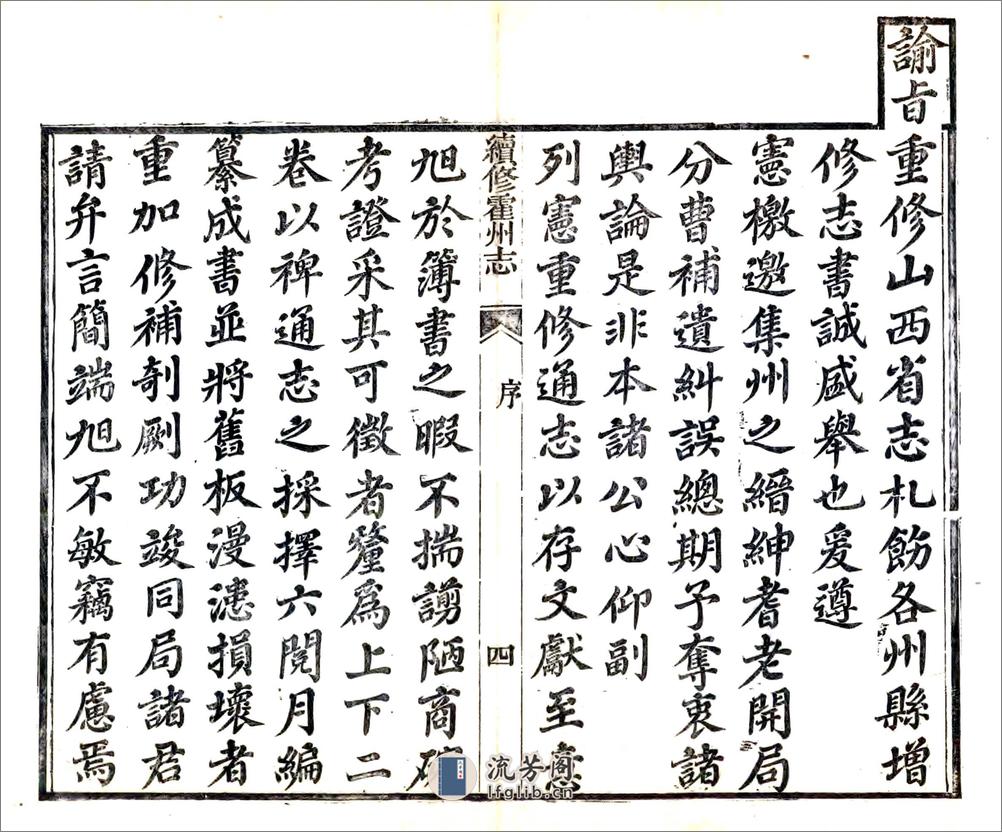 諭旨重修山西省志札飭各州縣增
修志書誠盛舉也爰遵
憲檄邀集州之縉紳耆老開局
分曹補遺糾誤總期予奪衷諸
輿論是非本諸公心仰副
列憲重修通志以存文獻至意
續修霍州志
序
四
旭於簿書之暇不揣謭陋商確
考證采其可徵者釐為上下二
卷以裨通志之採擇六閱月編
纂成書並將舊板漫漶損壞者
重加修補剞劂功竣同局諸君
請弁言簡端旭不敏竊有慮焉
流芳阁
lfglib.cn